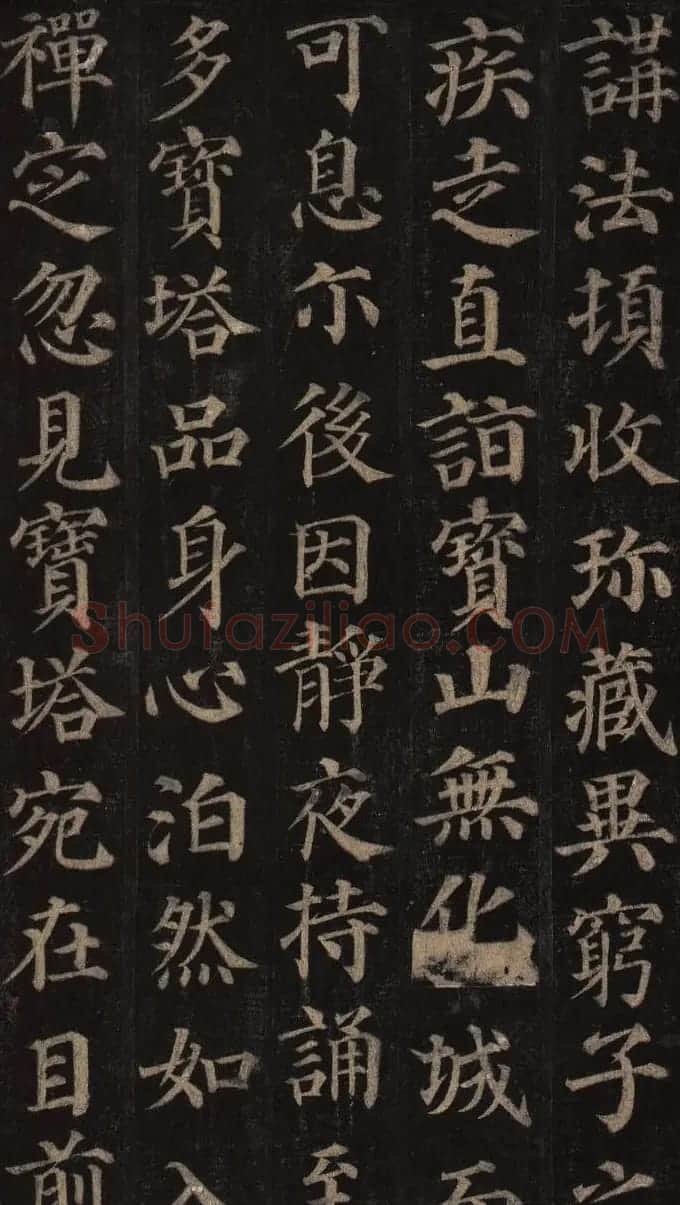 講法頓收珎藏異窮子之
疾走直詣寶山無化城而
可息尒後因静夜持誦至
多寶塔品身心泊然如入
禪定忽見寶塔宛在目前
Shufaziliao.COM